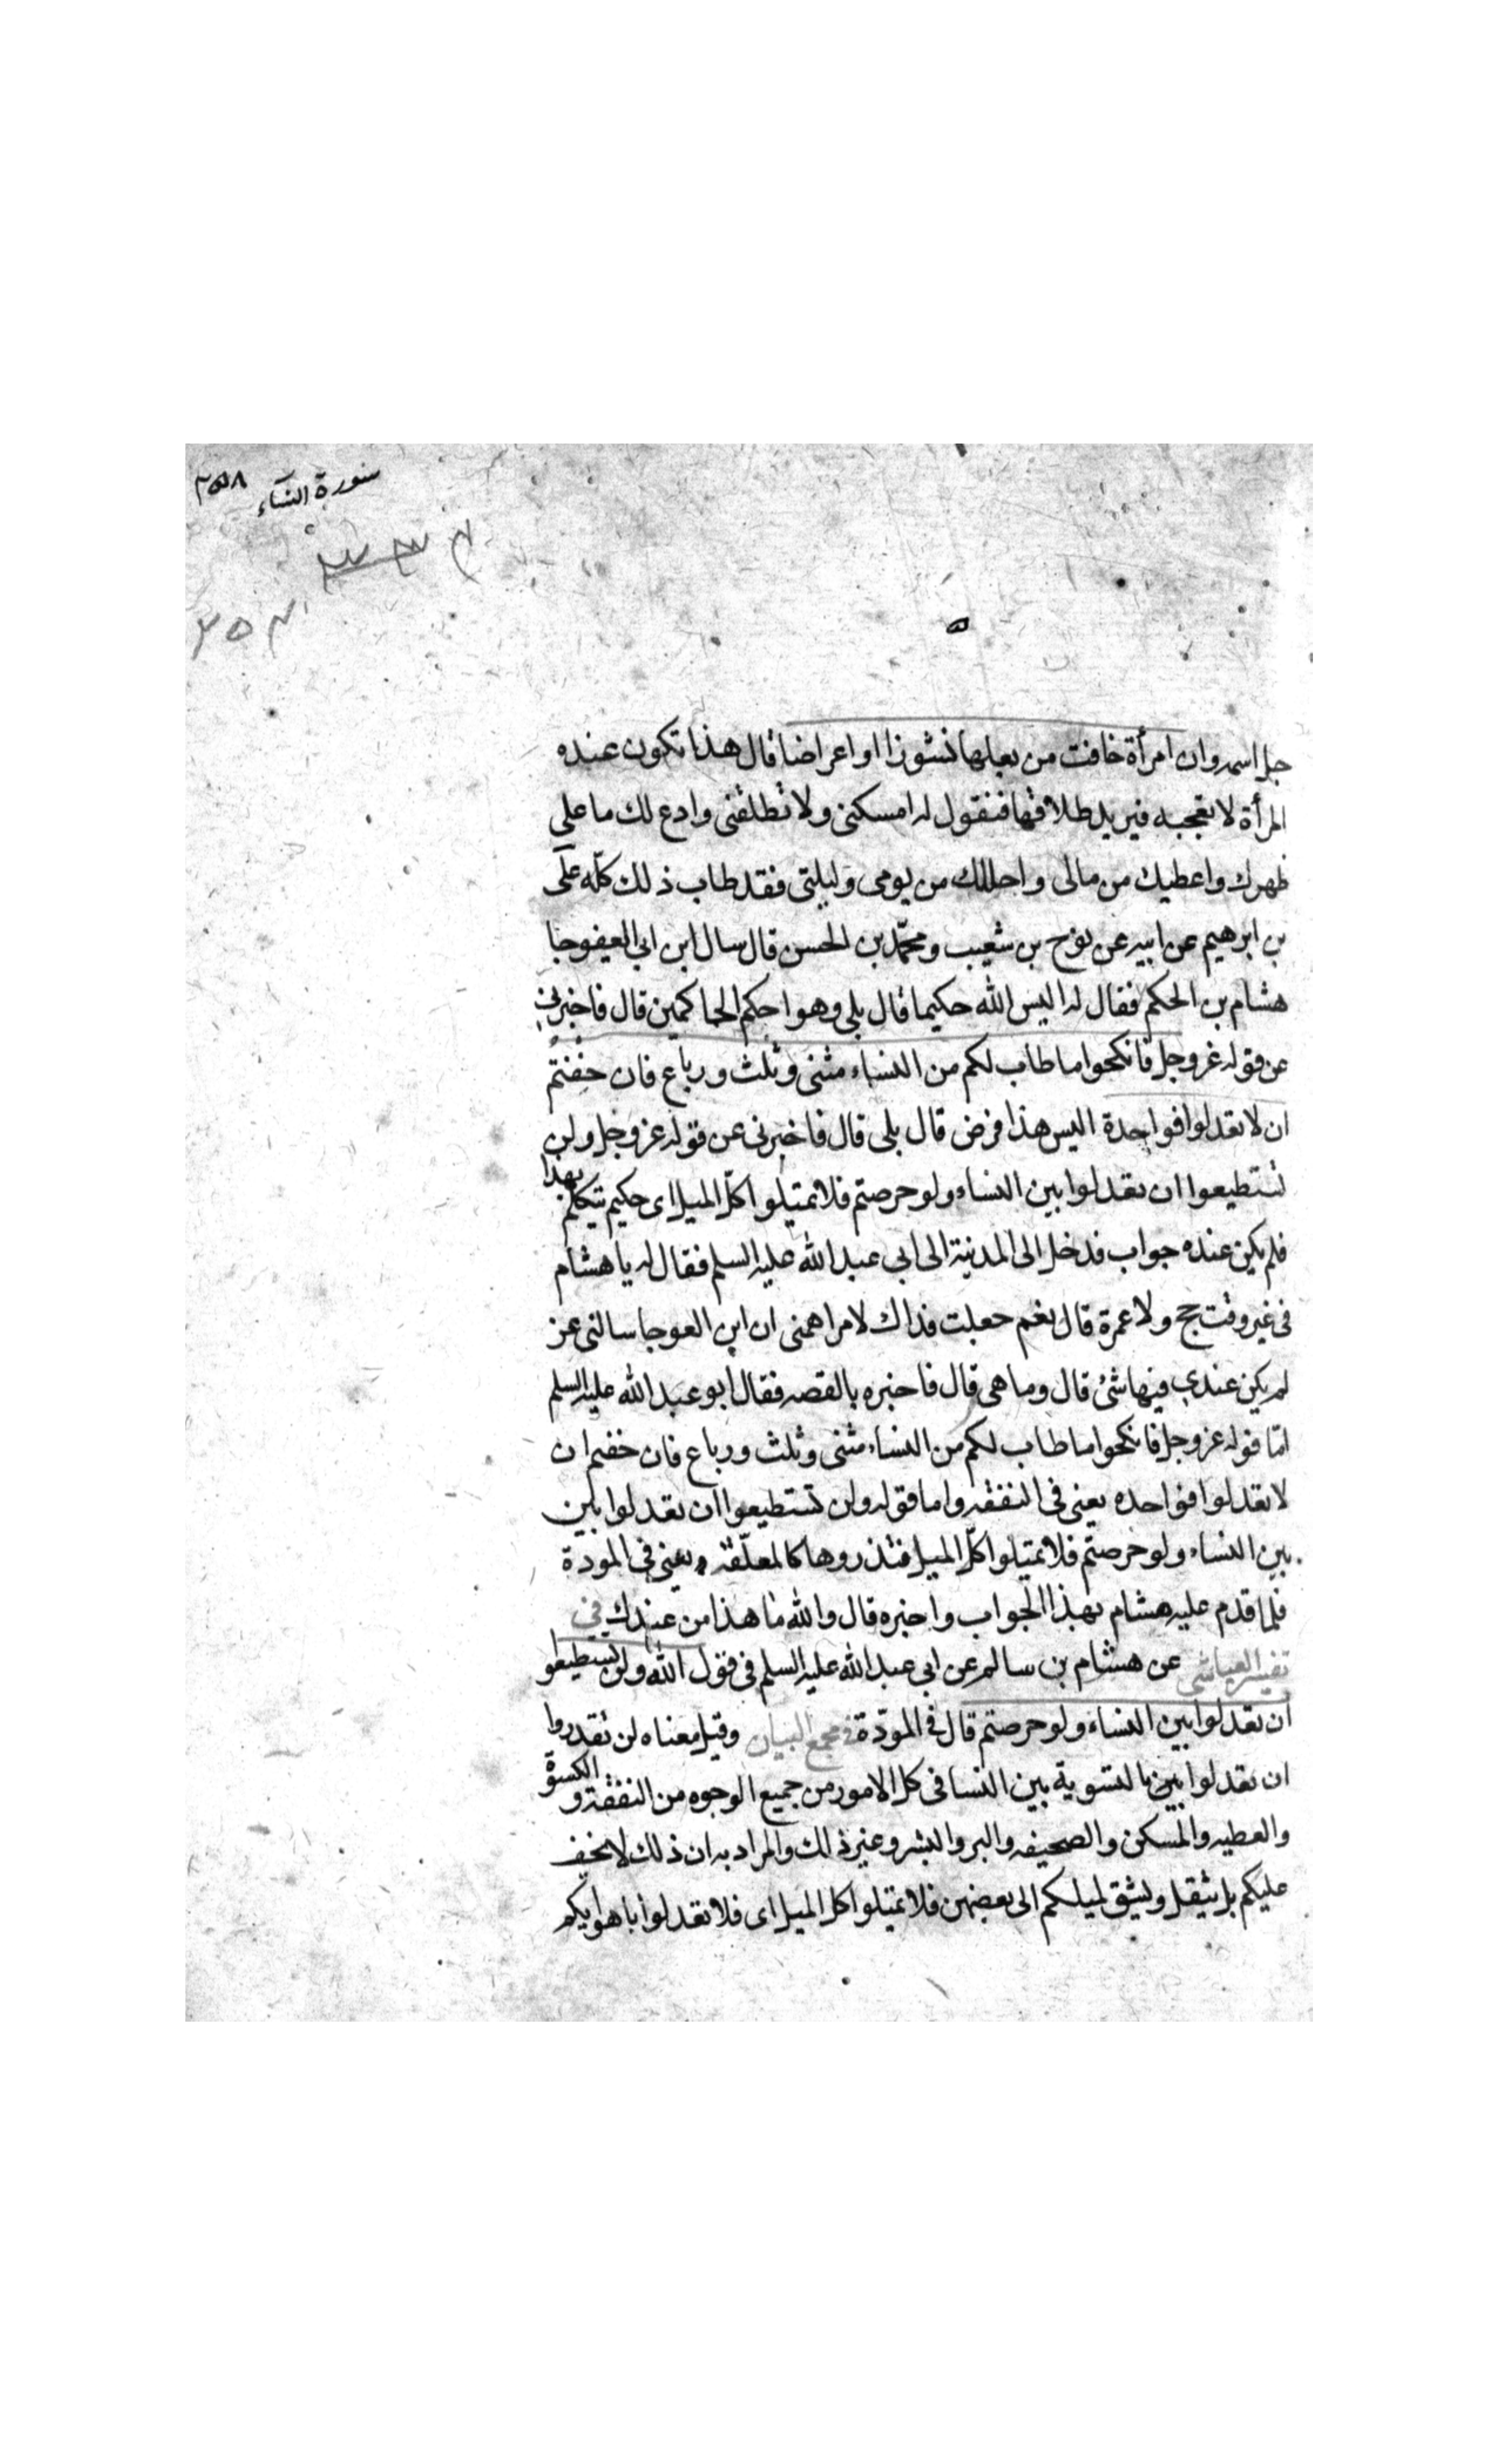 سورة النساء ٣٥٨
٢٥٣
جل اسمه وان امرأة خافت من بعلها نشوزا او اعراضا قال هذا تكون عنده
المرأة لا تعجبه فيريد طلاقها فتقول له امسكنى ولا تطلقنى وادع لك ما على
ظهرك واعطيك من مالى واحللك من يومى وليلتى فقد طاب ذلك كلّه علىّ
بن ابرهيم عن ابيه عن نوح بن شعيب ومحمّد بن الحسن قال سال ابن ابى العيفوجا
هشام بن الحكم فقال له اليس الله حكيما قال بلى وهو احكم الحاكمين قال فاخبرنى
عن قوله عز وجل فانكحوا ما طاب لكم من النساء مثنى وثلث ورباع فان خفتم
ان لا تعدلوا فواحدة اليس هذا فرض قال بلى قال فاخبرنى عن قوله عز وجل ولن
تستطيعوا ان تعدلوا بين النساء ولو حرصتم فلا تميلوا كلّ الميل اى حكيم يتكلم بهذا
فلم يكن عنده جواب فدخل الى المدينة الى ابى عبد الله عليه السلم فقال له يا هشام
فى غير وقت حج ولا عمرة قال نعم جعلت فداك لامر اهمنى ان ابن العوجا سالنى عن
لم يكن عندى فيها شئ قال وما هى قال فاخبره بالقصه فقال ابو عبد الله عليه السلم
امّا قوله عز وجل فانكحوا ما طاب لكم من النساء مثنى وثلث ورباع فان خفتم ان
لا تعدلوا فواحده يعنى فى النفقه واما قوله ولن تستطيعوا ان تعدلوا بين
بين النساء ولو حرصتم فلا تميلوا كلّ الميل فتذروها كالمعلّقة يعنى فى المودة
فلما قدم عليه هشام بهذا الجواب واخبره قال والله ما هذا من عندك فى
تفسير العياشى عن هشام بن سالم عن ابى عبد الله عليه السلم فى قول الله ولن تستطيعوا
ان تعدلوا بين النساء ولو حرصتم قال فى المودّة فى مجمع البيان وقيل معناه لن تقدروا
ان تعدلوا بين بالتسوية بين النسا فى كل الامور من جميع الوجوه من النفقة و الكسوة
والعطيه والمسكن والصحيفه والبر والبشر وغير ذلك والمراد به ان ذلك لا يخف
عليكم بل يثقل ويشق لميلكم الى بعضهن فلا تميلوا كل الميل اى فلا تعدلوا باهوايكم